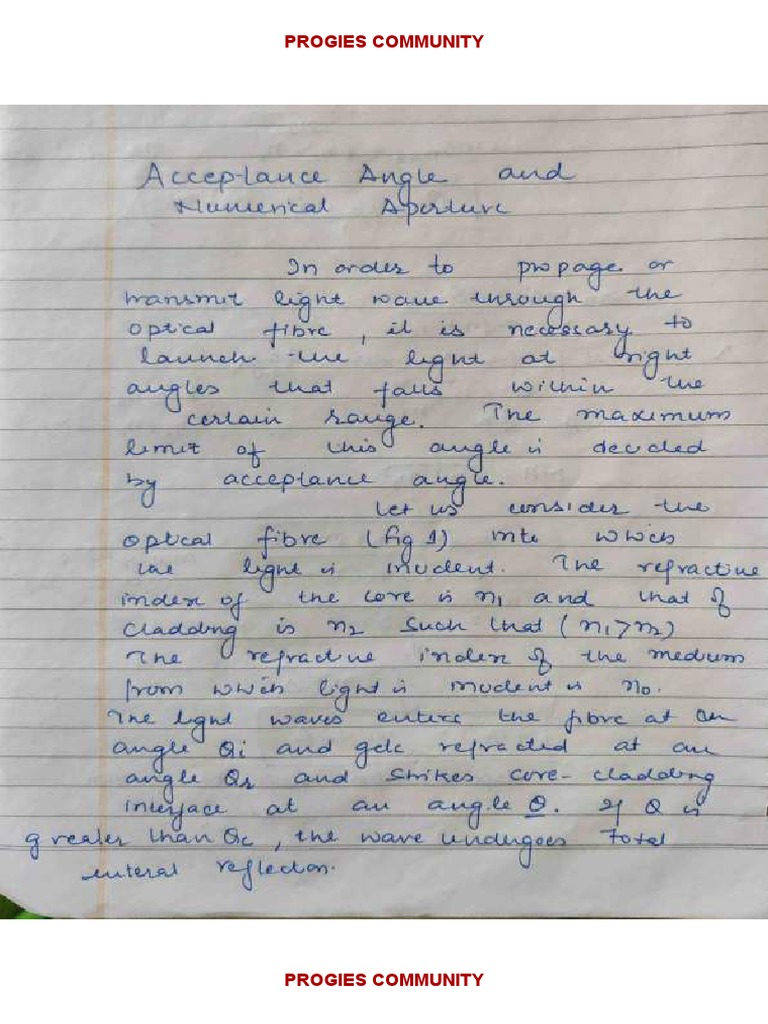 PROGIES COMMUNITY
Acceptance Angle and
Numerical Aperture
In order to propage or
transmit light wave through the
optical fibre, it is necessary to
launch the light at right
angles that falls within the
certain range. The maximum
limit of this angle is decided
by acceptance angle.
Let us consider the
optical fibre (fig 1) into which
the light is incident. The refractive
index of the core is n₁ and that of
cladding is n₂ such that (n₁>n₂)
The refractive index of the medium
from which light is incident is n₀.
The light waves enters the fibre at an
angle θi and gets refracted at an
angle θr and strikes core-cladding
interface at an angle θ. If θ is
greater than θc, the wave undergoes Total
interal reflection.
PROGIES COMMUNITY